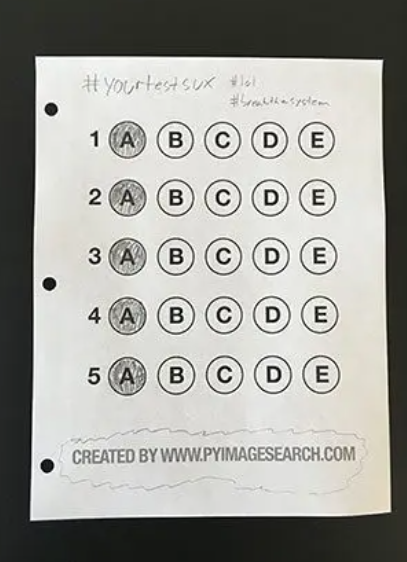 #yourtestsux #lol
#breakthesystem
1 A B C D E
2 A B C D E
3 A B C D E
4 A B C D E
5 A B C D E
CREATED BY WWW.PYIMAGESEARCH.COM